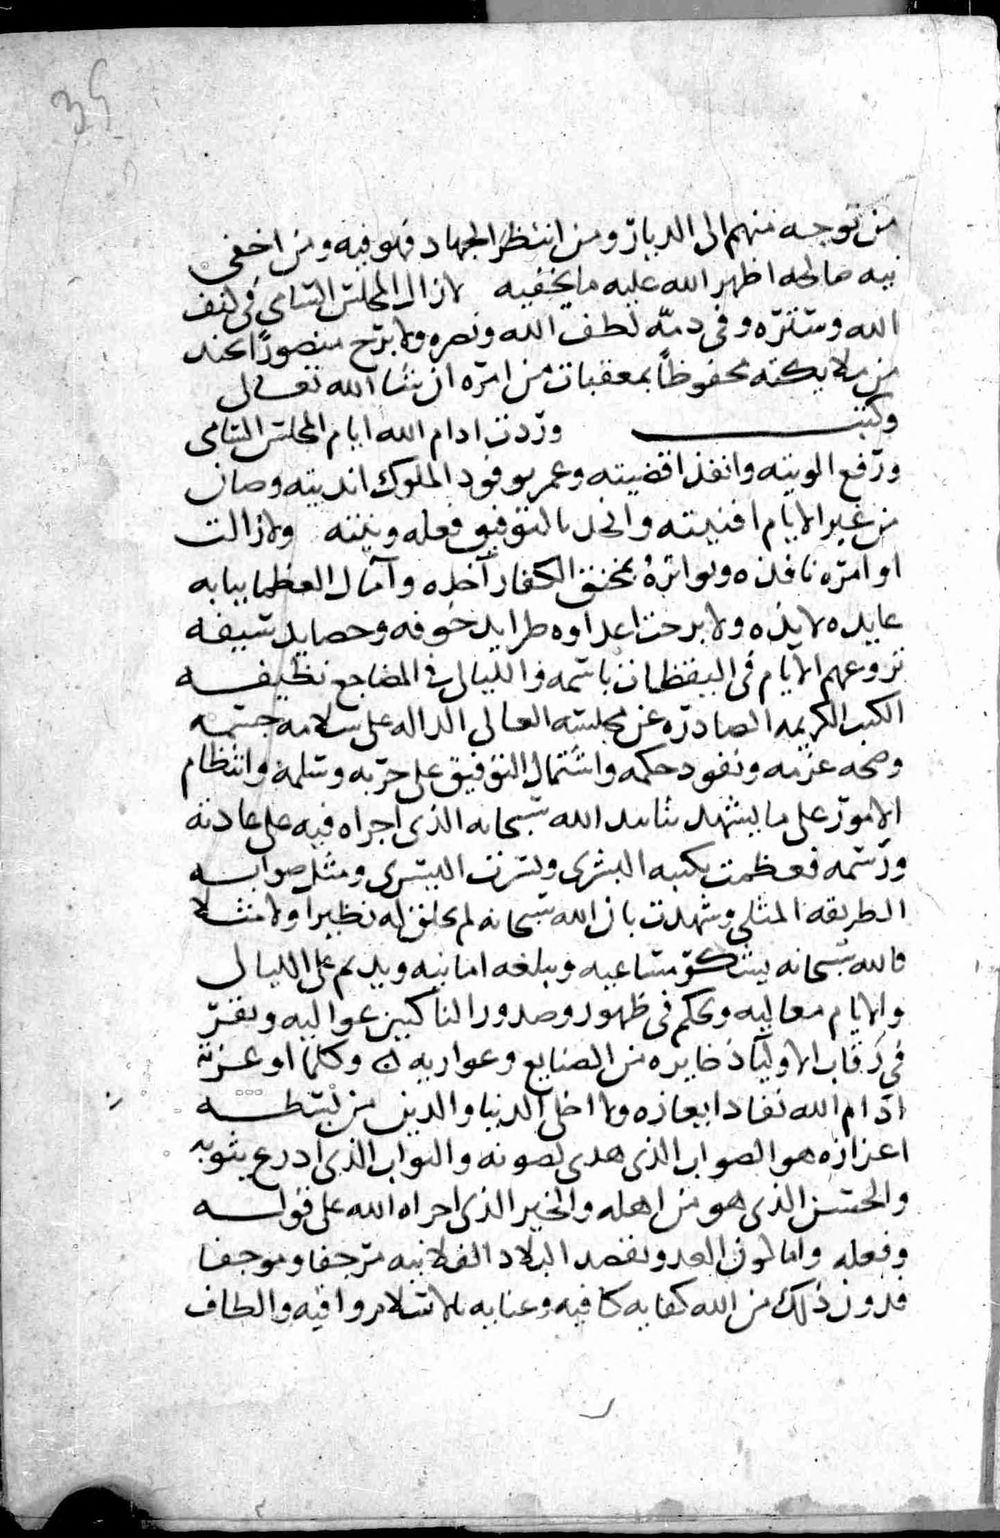 35
من توجه منهم الى الديار ومن انتظر الجهاد فهو فيه ومن اخفى
نيه صالحه اظهر الله عليه ما يخفيه لا زال المجلس السامى فى كنف
الله وستره وفى ذمه لطف الله ونصره ولا برح منصورا بجند
من ملايكته محفوظاً بمعقبات من امره ان شا الله تعالى
وكتب وردت ادام الله ايام المجلس السامى
ورفع الويته وانفذ اقضيته وعمر بوفود الملوك انديته وصان
من غير الايام افنيته وانجد بالتوفيق فعله ونيته ولا زالت
اوامره نافذه وبواتره بمخنق الكفار آخذه وآمال العظما ببابه
عايده لايذه ولا برحت اعداوه طرايد خوفه وحصايد سيفه
تروعهم الايام فى اليقظات باسمه والليالى فى المضاجع بطيفه
الكتب الكريمه الصادره عن مجلسه العالى الداله على سلامه جسمه
وصحه عزمه ونفوذ حكمه واشتمال التوفيق على حربه وسلمه وانتظام
الامور على ما يشهد بتاييد الله سبحانه الذى اجراه فيه على عادته
ورسمه فعظمت بكتبه البشرى ويسرت اليسرى ومثل صوابه
الطريقه المثلى وشهدت بان الله سبحانه لم يخلق له نظيرا ولا مثلا
فالله سبحانه يشكر مساعيه ويبلغه امانيه ويديم على الليالى
والايام معاليه ويحكم فى ظهور وصدور الناكبين عواليه ويقر
فى رقاب الاوليا ذخايره من الصنايع وعواريه وكلما اوعز به
ادام الله نفاذ ايعازه ولا اخلى الدنيا والدين من بسطه
اعزازه هو الصواب الذى هدى لصوبه والثواب الذى ادرع بثوبه
والحسن الذى هو من اهله والخير الذى اجراه الله على قوله
وفعله واما لون العدو يقصد البلاد الفلانيه مرجفا وموجفا
فدون ذلك من الله كفايه كافيه وعنايه بالاسلام وافيه والطاف